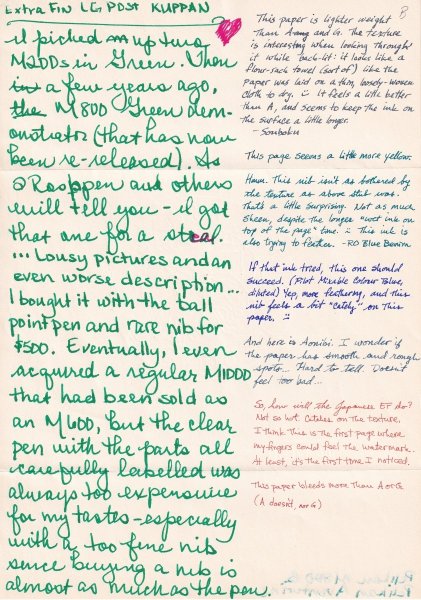 Extra Fin LG. POST KUPPAN
I picked up two
M200s in Green. Then
a few years ago,
the M800 Green dem-
onstrator (that has now
been re-released). As
@Rosppen and others
will tell you - I got
that one for a steal.
... Lousy pictures and an
even worse description...
I bought it with the ball
point pen and rare nib for
$500. Eventually, I even
acquired a regular M1000
that had been sold as
an M600, but the clear
pen with the parts all
carefully labelled was
always too expensive
for my tastes - especially
with a too fine nib
since buying a nib is
almost as much as the pen.
B
This paper is lighter weight
Than A and G. The texture
is interesting when looking through
it while back-lit: it looks like a
flour-sack towel (sort of) like the
paper was laid on a thin, loosely-woven
cloth to dry. :) It feels a little better
than A, and seems to keep the ink on
the surface a little longer.
- Souboku
This page seems a little more yellow.
Hmm. This nib isn't as bothered by
the texture as above stub was.
that's a little surprising. Not as much
sheen, despite the longer "wet ink on
top of the page" time. :: This ink is
also trying to feather. - RO Blue Benim
If that ink tried, this one should
succeed. (Pilot Mixable Colour Blue,
diluted) Yep, more feathering, and this
nib feels a bit "Catchy" on this
paper. ::
And here is Aonibi. I wonder if
the paper has smooth and rough
spots... Hard to tell. Doesn't
feel too bad...
So, how will the Japanese EF do?
Not so hot. Catches on the texture,
I think this is the first page where
my fingers could feel the watermark.
At least, it's the first time I noticed.
This paper bleeds more than A or G
(A doesn't, nor G)